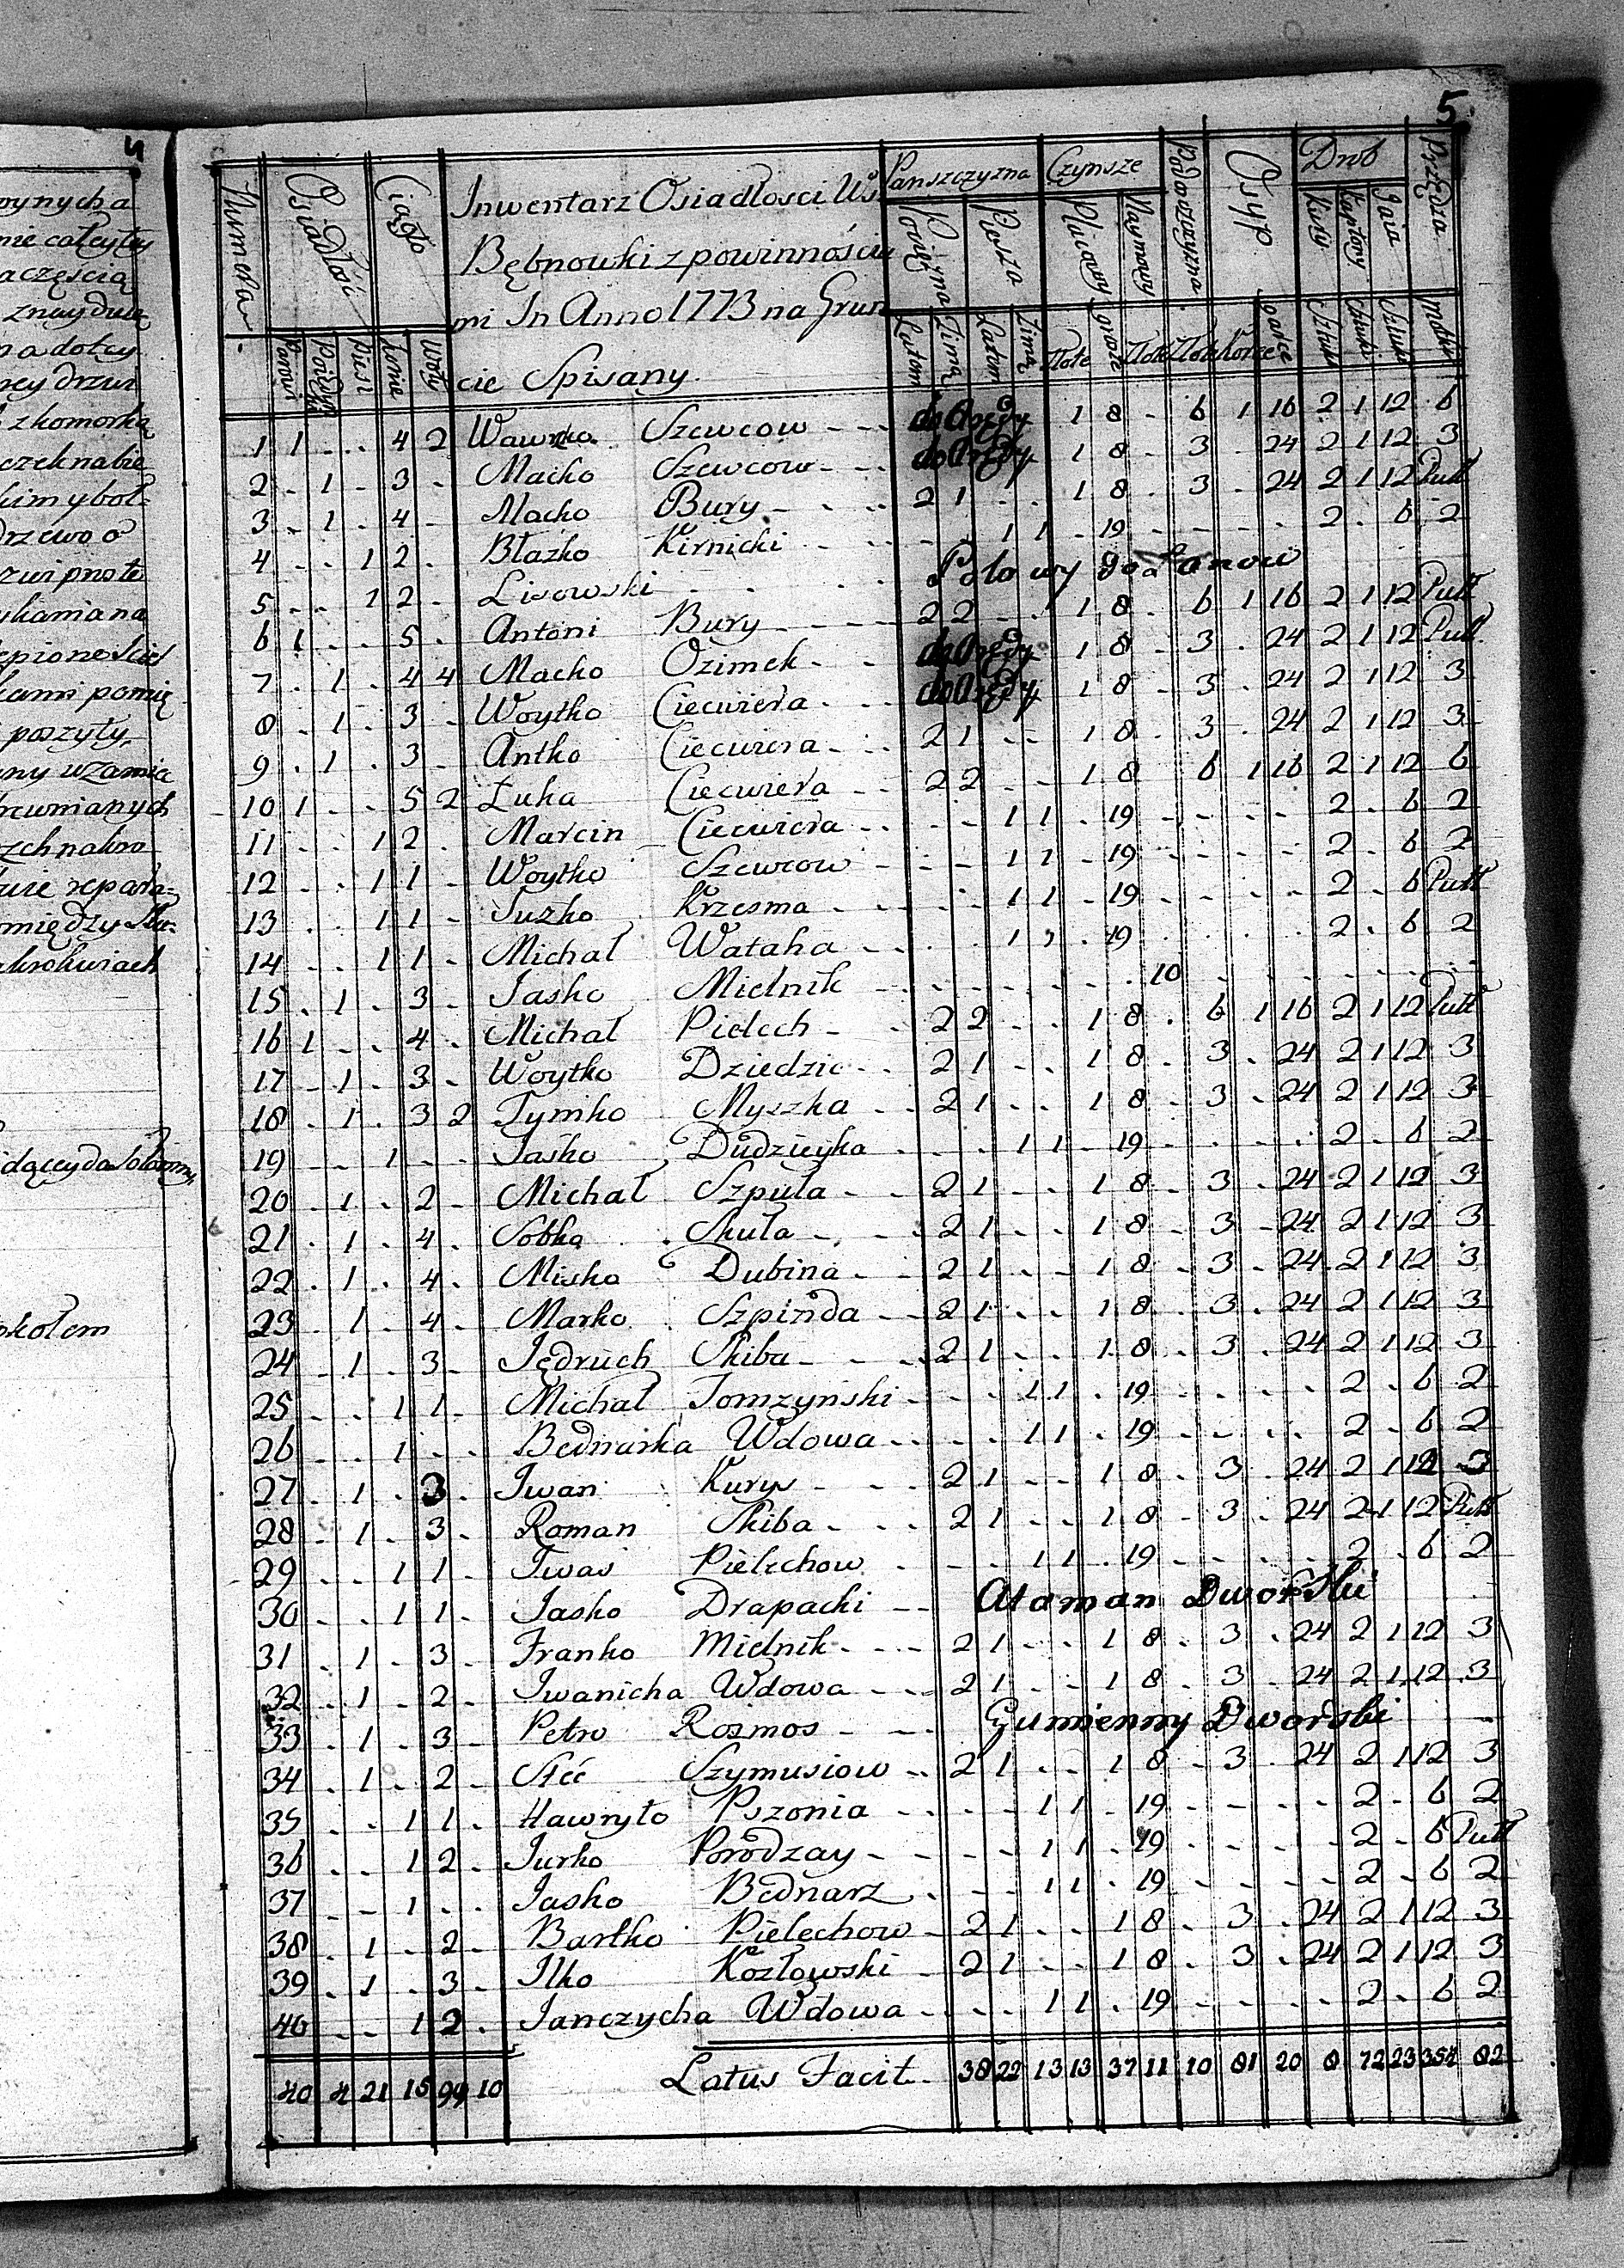 4
wynych a
nie całey tey
a częscią
znayduią
na do tey
rey drzwi
z komorką
czek nabie
kim y boł-
drzewo o
zwi proste
ykania na
kami pomię
poszyty
any w zamia
drewnianych
zech nakro
omiędzy Słu-
akrokwiach
idącey do
okołem
5.
Numera Osiadłość Ciągło Inwentarz Osiadłosci Wsi Panszczyzna Czynsze Podorożczyzna Osyp Drob Przędza
Bębnowki z powinnościa Powiężna Piesza Placowy Naymowy Kury Kapłony Jaia
mi In Anno 1773 na Grun
cie Spisany.
Parowi Poiedynki Piesi Konie Woły Latem Zimą Latem Zimą złote grosze złote złote korce garce Sztuki Sztuki Sztuki Motki
1 1 . . 4 2 Wawrko Szewcow - - do Arędy 1 8 - 6 1 16 2 1 12 6
2 - 1 - 3 - Maćko Szewcow - - do Arędy 1 8 - 3 - 24 2 1 12 3
3 . 1 . 4 - Macko Bury - - 2 1 . . 1 8 . 3 . 24 2 1 12 Putt
4 - - 1 2 . Błażko Kirnicki . . . - - 1 1 - 19 - - - - 2 . 6 2
5 - . 1 2 - Lisowski . . . Polowy do Łanow
6 1 . . 5 . Antoni Bury - - 2 2 - . 1 8 - 6 1 16 2 1 12 Putt
7 . 1 . 4 4 Macko Ozimek - - do Arędy 1 8 - 3 . 24 2 1 12 Putt
8 . 1 . 3 - Woytko Ciecwiera - - do Arędy 1 8 - 3 . 24 2 1 12 3
9 . 1 . 3 - Antko Ciecwiera - - 2 1 - - 1 8 . 3 . 24 2 1 12 3
10 1 . . 5 2 Łuka Ciecwiera - - 2 2 - - 1 8 6 1 16 2 1 12 6
11 . . 1 2 - Marcin Ciecwiera - - - - 1 1 - 19 - - - - 2 . 6 2
12 . . 1 1 - Woytko Szewcow - - - - 1 1 - 19 - - - - 2 . 6 2
13 . . 1 1 - Juzko Krzesma - - - - 1 1 - 19 - - - - 2 - 6 Putt
14 . . 1 1 - Michał Wataha - - . . 1 1 . 19 . . . . 2 . 6 2
15 . 1 . 3 - Jasko Mielnik - - - - - - - - 10 - - - - - -
16 1 . . 4 . Michał Pielech - - 2 2 . . 1 8 . 6 1 16 2 1 12 Putt
17 - 1 . 3 - Woytko Dziedzic - - 2 1 - . 1 8 . 3 . 24 2 1 12 3
18 . 1 . 3 2 Tymko Myszka - - 2 1 . . 1 8 - 3 - 24 2 1 12 3
19 - - 1 . . Jasko Dudzicyka . . . . 1 1 - 19 - - . . 2 - 6 2
20 . 1 . 2 - Michał Szpuła - - 2 1 . . 1 8 - 3 - 24 2 1 12 3
21 . 1 . 4 . Sobka Skuła - - 2 1 - - 1 8 - 3 - 24 2 1 12 3
22 . 1 . 4 . Misko Dubina - - 2 1 - - 1 8 - 3 - 24 2 1 12 3
23 . 1 . 4 - Marko Szpinda - - 2 1 . . 1 8 . 3 . 24 2 1 12 3
24 . 1 . 3 - Jędruch Skiba - - - 2 1 - - 1 8 . 3 . 24 2 1 12 3
25 . . 1 1 - Michał Tomzyński - - - . 1 1 . 19 . . . . 2 . 6 2
26 . . 1 . . Bednarka Wdowa - - . . 1 1 . 19 - . - . 2 . 6 2
27 . 1 . 3 . Iwan Kurys - - 2 1 - - 1 8 . 3 . 24 2 1 12 3
28 . 1 . 3 . Roman Skiba - - - 2 1 - - 1 8 - 3 . 24 2 1 12 Putt
29 . . 1 1 . Iwas Pielechow - - - 1 1 . 19 - - - . 2 . 6 2
30 . . 1 1 . Jasko Drapacki - - Ataman Dworski
31 . 1 . 3 . Franko Mielnik - - - 2 1 . . 1 8 . 3 . 24 2 1 12 3
32 . 1 . 2 . Iwanicha Wdowa - - 2 1 . - 1 8 . 3 . 24 2 1 12 3
33 . 1 . 3 - Petro Rozmos - - - Gumienny Dworski
34 . 1 . 2 - Steć Szymusiow - - 2 1 . - 1 8 - 3 . 24 2 1 12 3
35 . . 1 1 . Hawryło Pszonia - - - - 1 1 . 19 . - - . 2 . 6 2
36 . . 1 2 . Jurko Porodzay - - - - 1 1 . 19 - - - - 2 - 6 Putt
37 - - 1 . . Jasko Bednarz . . - - 1 1 . 19 - - - - 2 . 6 2
38 . 1 . 2 - Bartko Pielechow - 2 1 . . 1 8 . 3 . 24 2 1 12 3
39 . 1 . 3 . Ilko Kozłowski - 2 1 . . 1 8 - 3 - 24 2 1 12 3
40 - - 1 2 . Janczycha Wdowa - . . . 1 1 . 19 . - - - 2 . 6 2
40 4 21 15 99 10 Latus Facit - 38 22 13 13 37 11 10 81 20 8 72 23 354 82